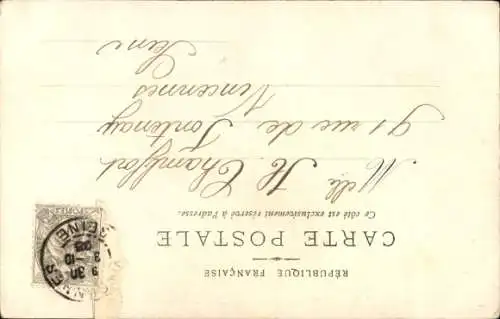 RÉPUBLIQUE FRANÇAISE
CARTE POSTALE
Ce côté est exclusivement réservé à l'adresse.
Melle H. Chamfort
91 rue de Fontenay
Vincennes
Seine
9 30
SEINE